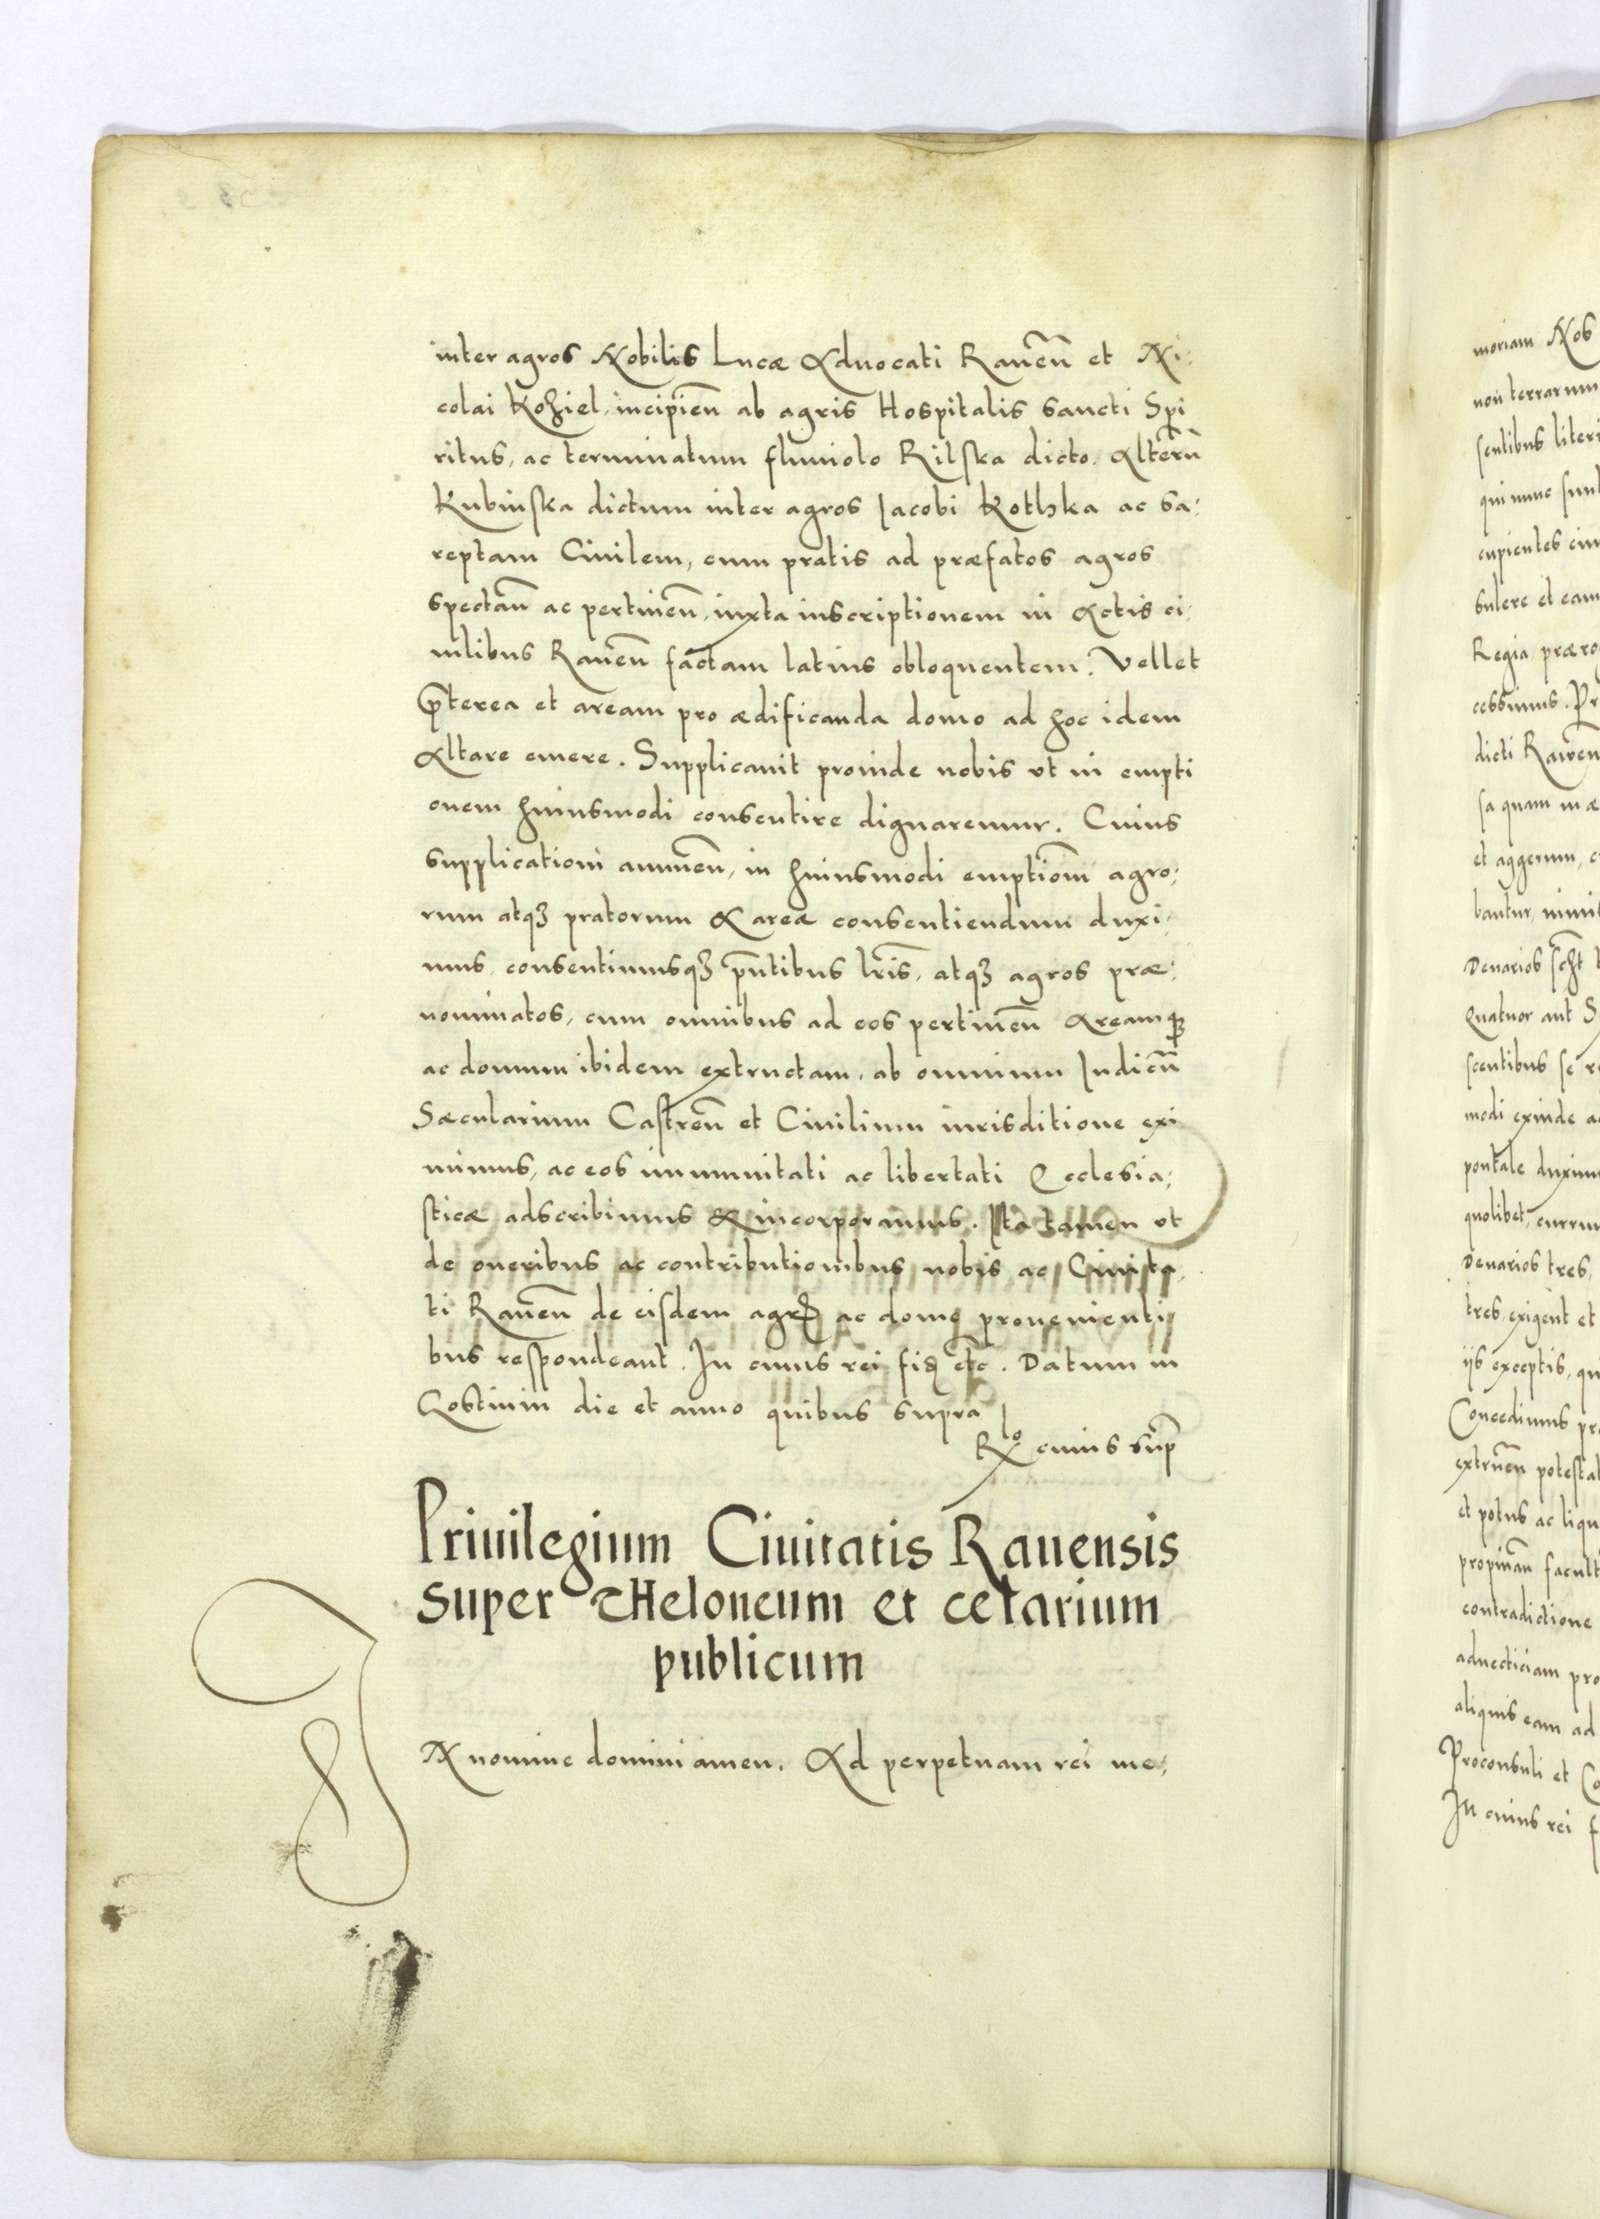 inter agros Nobilis Lucæ Aduocati Rauen̄ et Ni:
colai Koziel, incipien̄ ab agris Hospitalis Sancti Spi
ritus, ac terminatum fluuiolo Rilska dicto. Alterū
Kubinska dictum inter agros Jacobi Kothka ac sa:
reptam Ciuilem, cum pratis ad præfatos agros
spectan̄ ac pertinen̄, iuxta inscriptionem in Actis ci:
uilibus Rauen̄ factam latius obloquentem. Vellet
p̄terea et aream pro ædificanda domo ad hoc idem
Altare emere. Supplicauit proinde nobis vt in empti
onem huiusmodi consentire dignaremur. Cuius
supplicationi annuen̄, in huiusmodi emption̄e agro:
rum atqȝ pratorum & areæ consentiendum duxi:
mus, consentimusqȝ pn̄tibus lr̄is, atqȝ agros præ:
nominatos, cum omnibus ad eos pertinen̄ Areamqȝ
ac domum ibidem extructam, ab omnium Iudicū
Sæcularium Castren̄ et Ciuilium iurisditione exi
mimus, ac eos immunitati ac libertati Ecclesia:
sticæ adscribimus & incorporamus. Ita tamen vt
de oneribus ac contributionibus nobis ac Ciuita
ti Rauen̄ de eisdem agrꝭ ac domo prouenienti
bus respondeant. In cuius rei fiđ etc̄. Datum in
Gostinin die et anno quibus supra
Rᵒ cuius sup̄
Priuilegium Ciuitatis Rauensis
super Theloneum et cetarium
publicum
IN nomine domini amen. Ad perpetuam rei me:
moriam Nos
non terrarum
sentibus literi
qui nunc sunt
cupientes
sulere et eam
Regia prærog
cessimus. Pr
dicti Rawen
sa quam
et aggerum, c
bantur,
Denarios
Quatuor aut S
scentibus se re
modi exinde a
pontale duximu
quolibet, curru
Denarios tres,
tres, exigent et
iis exceptis, qu
Concedimus pr
extruen̄ potestat
et potus ac liqu
propinan̄ facult
contradictione
aduecticiam pro
aliquis eam ad
Proconsuli et Co
In cuius rei f